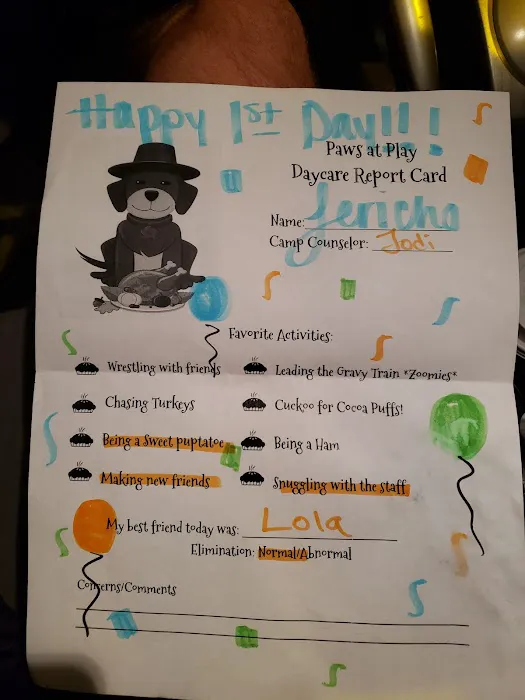 Happy 1st Day!!!
Paws at Play
Daycare Report Card
Name: Jericho
Camp Counselor: Jodi
Favorite Activities:
Wrestling with friends
Leading the Gravy Train *Zoomies*
Chasing Turkeys
Cuckoo for Cocoa Puffs!
Being a Sweet puptatoe
Being a Ham
Making new friends
Snuggling with the staff
My best friend today was: Lola
Elimination: Normal/Abnormal
Concerns/Comments